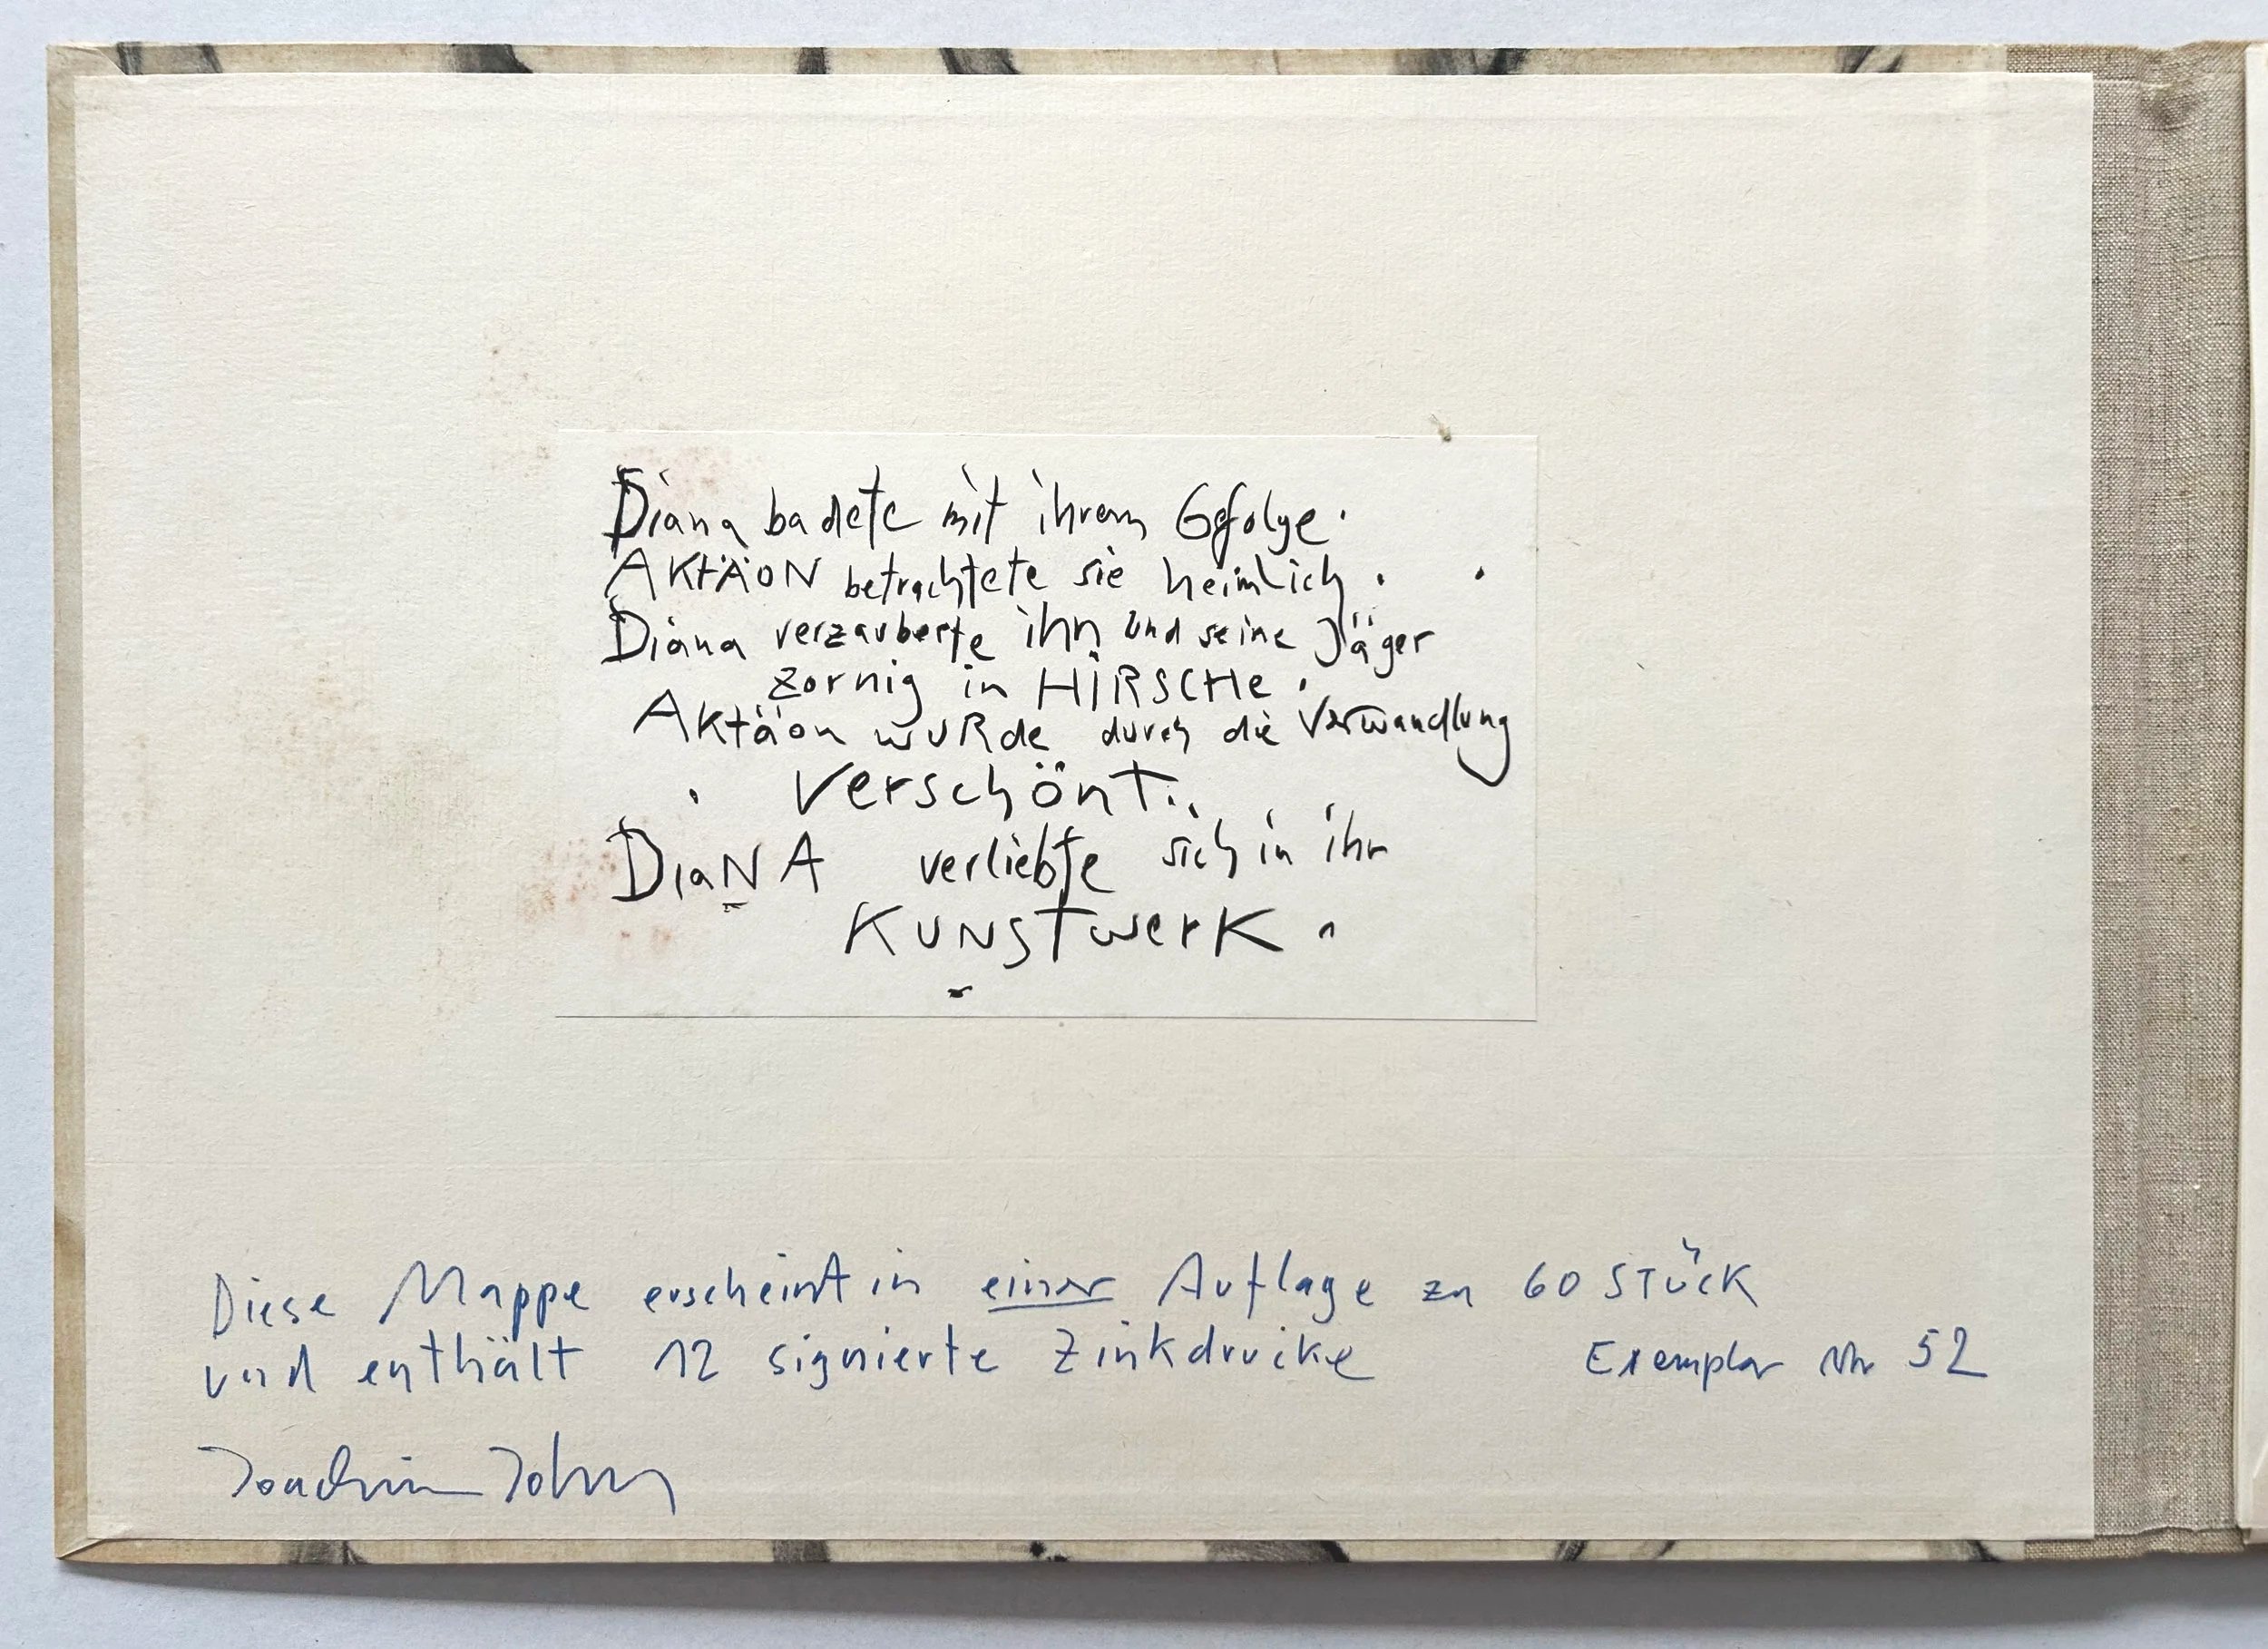 Diana badete mit ihrem Gefolge.
AKtÄoN betrachtete sie heimlich.
Diana verzauberte ihn und seine Jäger
zornig in HiRSCHe.
Aktäon wuRde durch die Verwandlung
verschönt.
DiaNA verliebte sich in ihr
KUNSTwerK.
Diese Mappe erscheint in einer Auflage zu 60 STücK
und enthält 12 signierte Zinkdrucke Exemplar Nr 52
Joachim John